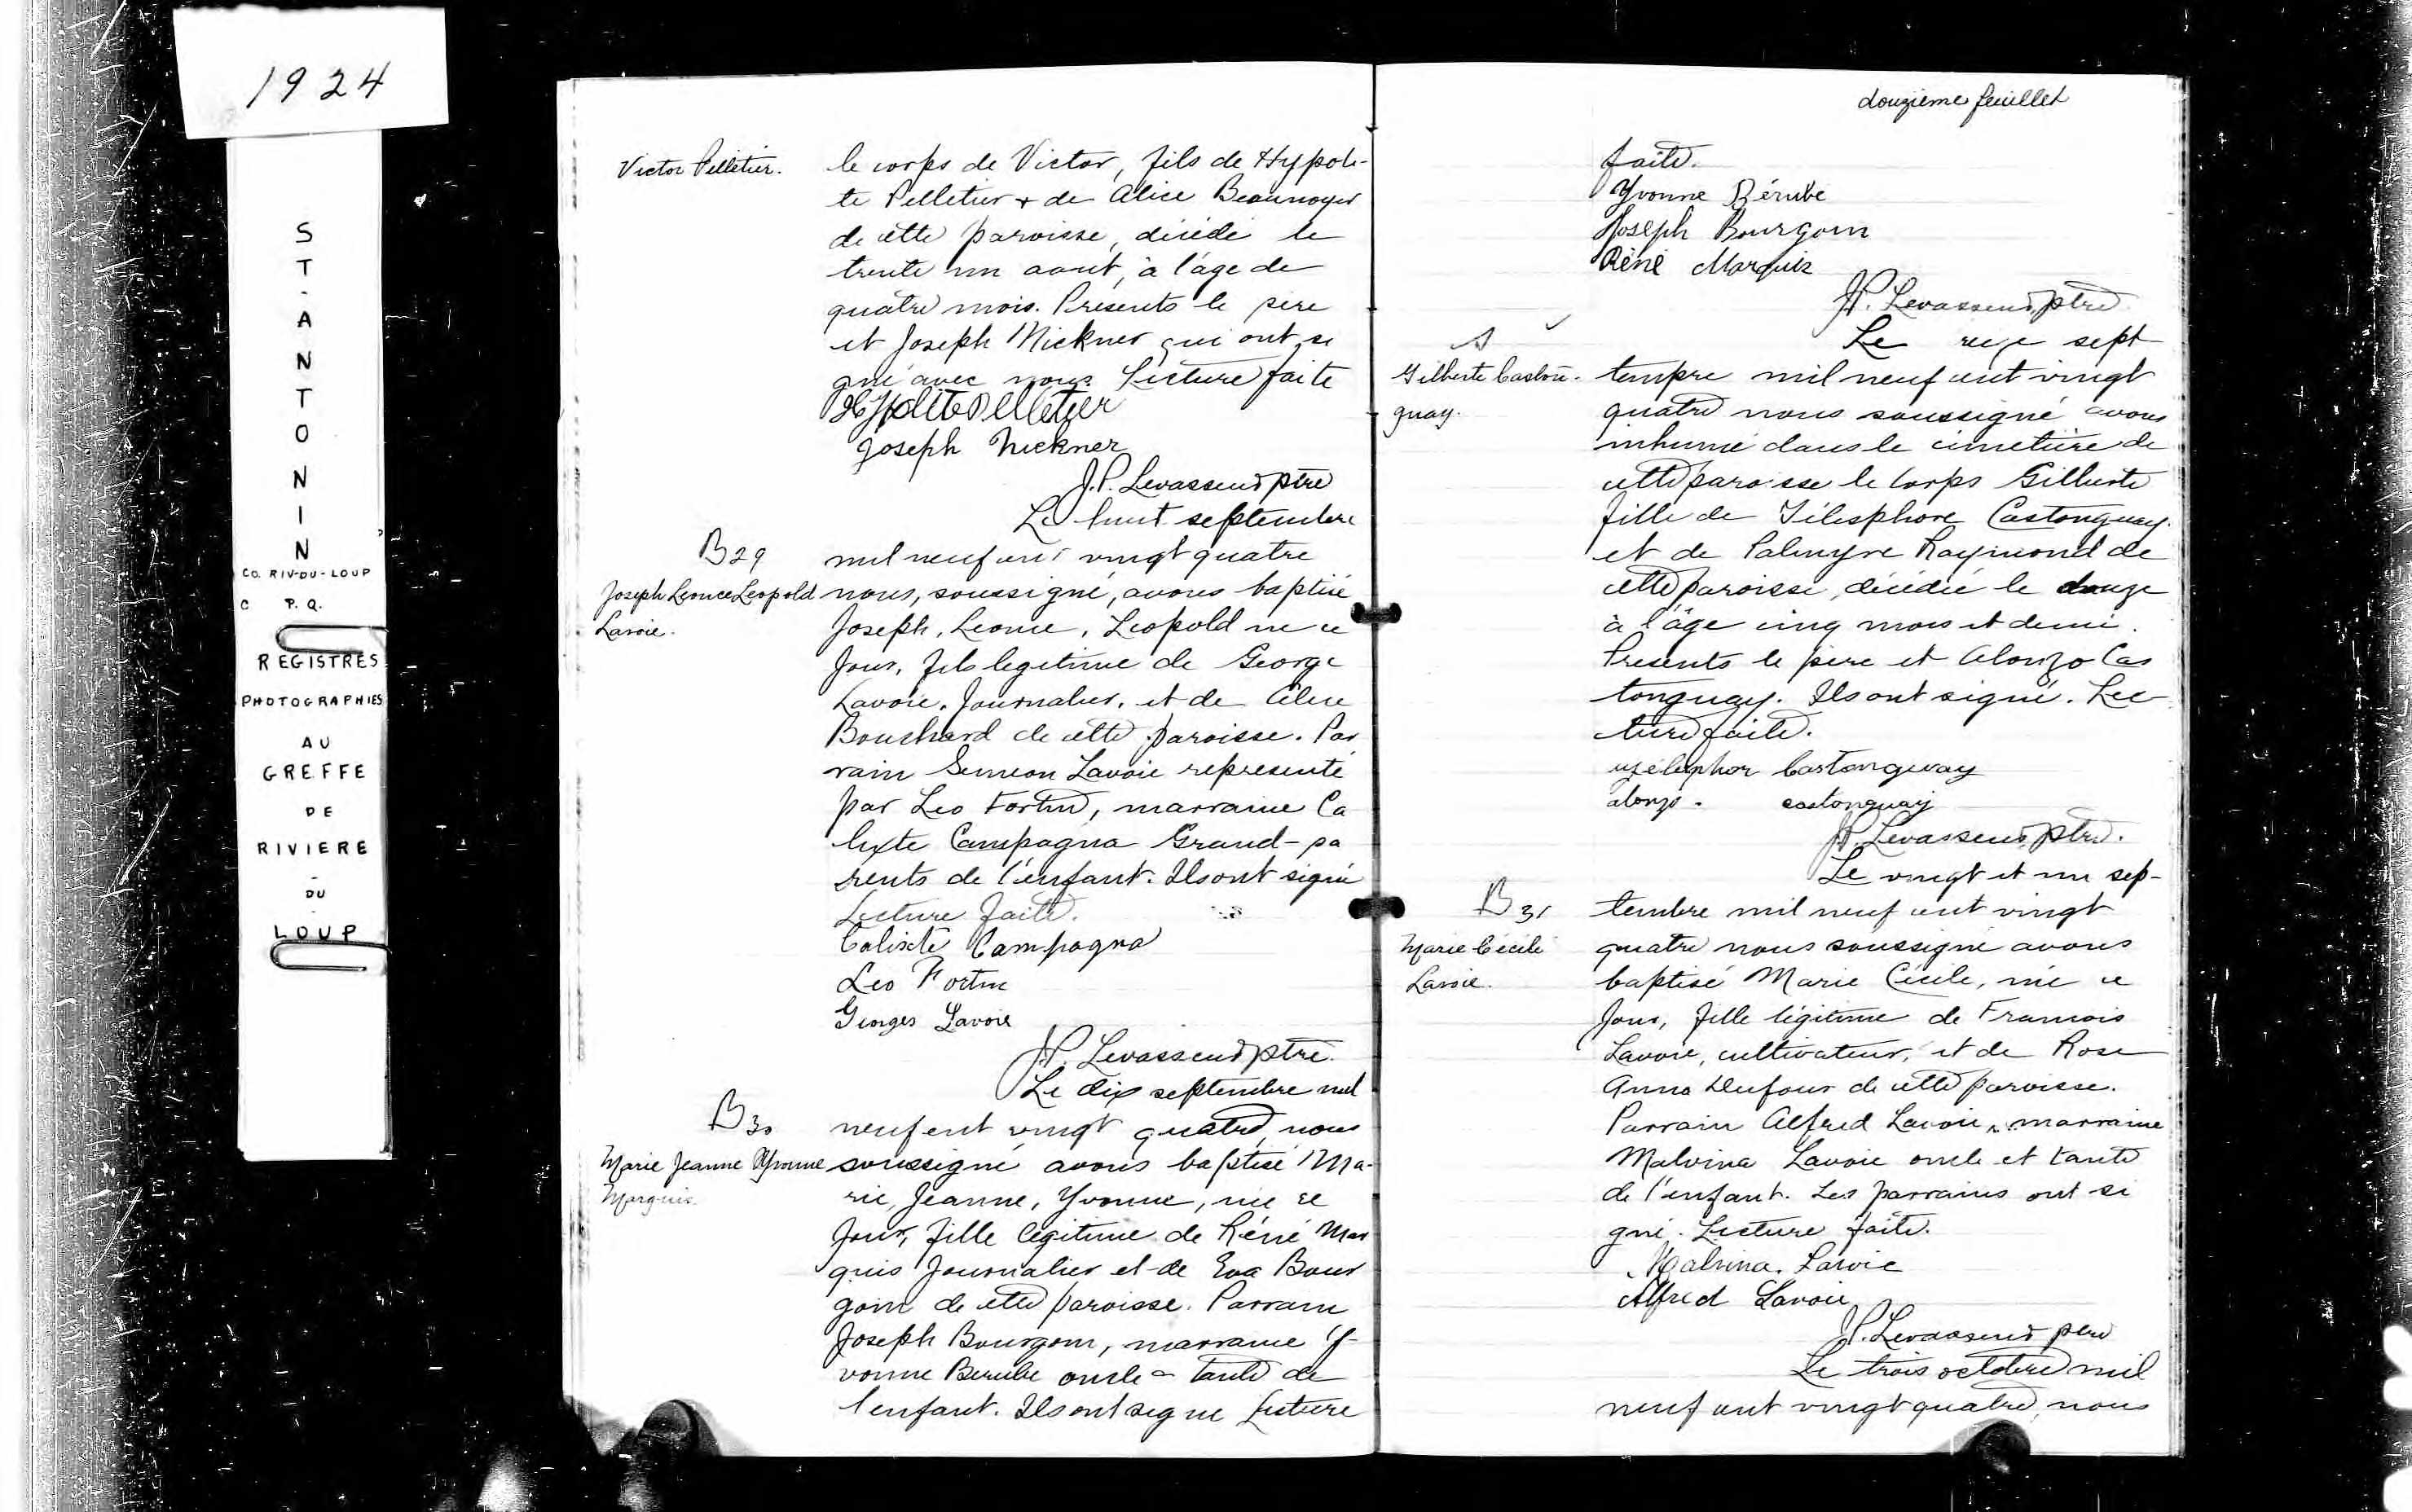 1924
S
T
-
A
N
T
O
N
I
N
CO. RIV-DU-LOUP
C P.Q.
REGISTRES
PHOTOGRAPHIES
AU
GREFFE
DE
RIVIERE
-
DU
-
LOUP
Victor Pelletier.
le corps de Victor, fils de Hypoli-
te Pelletier + de Alice Beaunoyer
de cette paroisse, décédé le
trente un aout, à l'âge de
quatre mois. Presents le père
et Joseph Nickner qui ont si
gné avec nous Lecture faite
Hypolite Pelletier
Joseph Nickner
J.P. Levasseur ptre
Le huit septembre
B 29
Joseph Leonce Leopold
Lavoie.
mil neuf cent vingt quatre
nous, soussigné, avons baptisé
Joseph, Leonce, Leopold né ce
jour, fils legitime de George
Lavoie, Journalier, et de Alice
Bouchard de cette paroisse. Par
rain Simeon Lavoie represente
par Leo Fortin, marraine Ca
lixte Campagna Grand-pa
rents de l'enfant. Ils ont signé
Lecture faite.
Calixte Campagna
Leo Fortin
Georges Lavoie
J.P. Levasseur ptre.
Le dix septembre mil
B 30
Marie Jeanne Yvonne
Marquis.
neuf cent vingt quatre, nous
soussigné avons baptisé Ma-
rie, Jeanne, Yvonne, née ce
jour, fille legitime de Réné Mar
quis Journalier et de Eva Bour
goin de cette paroisse. Parrain
Joseph Bourgoin, marraine Y-
vonne Berube oncle & tante de
l'enfant. Ils ont signe Lecture
douzieme feuillet
faite.
Yvonne Bérubé
Joseph Bourgoin
Réné Marquis
J.P. Levasseur ptre
Le sept
S
Gilberte Caston-
guay.
tempre mil neuf cent vingt
quatre nous soussigné avons
inhumé dans le cimetière de
cette paroisse le corps Gilberte
fille de Télesphore Castonguay
et de Palmyre Raymond de
cette paroisse, décédée le douze
à l'âge cinq mois et demi.
Presents le père et Alonzo Cas
tonguay. Ils ont signé. Lec
ture faite.
Castonguay
alonzo. castonguay
J.P. Levasseur ptre.
Le vingt et un sep-
B 31
Marie Cécile
Lavoie.
tembre mil neuf cent vingt
quatre nous soussigné avons
baptisé Marie Cécile, née ce
jour, fille légitime de Francois
Lavoie, cultivateur, et de Rose
Anna Dufour de cette paroisse.
Parrain Alfred Lavoie, marraine
Malvina Lavoie oncle et tante
de l'enfant. Les parrains ont si
gné. Lecture faite.
Malvina. Lavoie
Alfred Lavoie
J.P. Levasseur ptre
Le trois octobre mil
neuf cent vingt quatre, nous